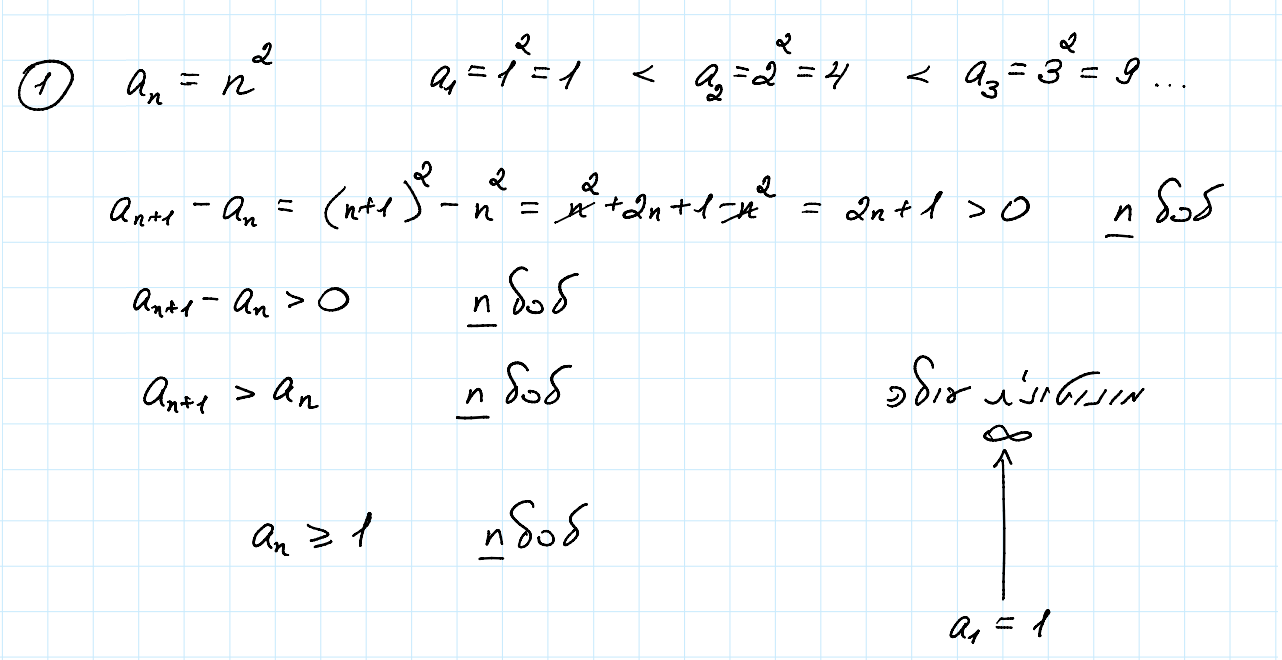 ① aₙ = n² a₁ = 1² = 1 < a₂ = 2² = 4 < a₃ = 3² = 9 ...
aₙ₊₁ - aₙ = (n+1)² - n² = n² + 2n + 1 - n² = 2n + 1 > 0 לכל n
aₙ₊₁ - aₙ > 0 לכל n
aₙ₊₁ > aₙ לכל n
מונוטונית עולה
∞
aₙ ≥ 1 לכל n
a₁ = 1